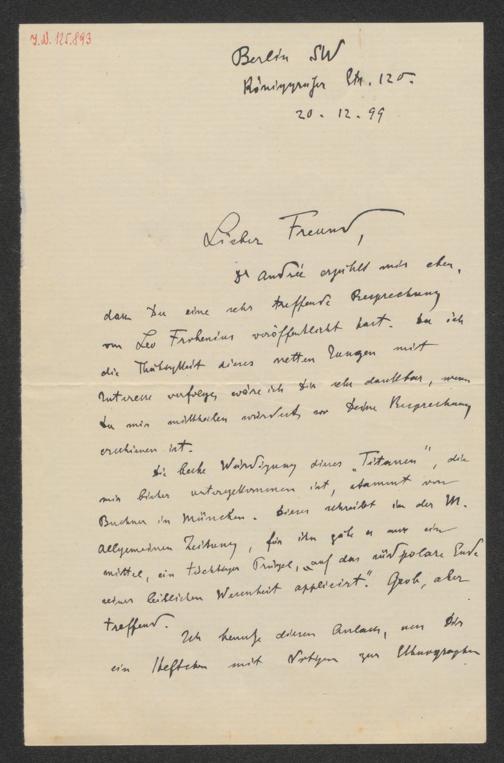 J.N. 125.893
Berlin SW
Königgrätzer Str. 120.
20. 12. 99
Lieber Freund,
Dr Andrée erzählt mir eben,
dass Du eine sehr treffende Besprechung
von Leo Frobenius veröffentlicht hast. Da ich
die Thätigkeit dieses netten Jungen mit
Interesse verfolge, wäre ich Dir sehr dankbar, wenn
Du mir mittheilen würdest, wo Deine Besprechung
erschienen ist.
Die beste Würdigung dieses „Titanen", die
mir bisher untergekommen ist, stammt von
Buchner in München. Dieser schreibt in der M.
Allgemeinen Zeitung, für ihn gäbe es nur ein
Mittel, ein tüchtiger Prügel, „auf das südpolare Ende
seiner leiblichen Wesenheit applicirt". Grob, aber
treffend.
Ich benutze diesen Anlass, um Dir
ein Heftchen mit Notizen zur Ethnographie